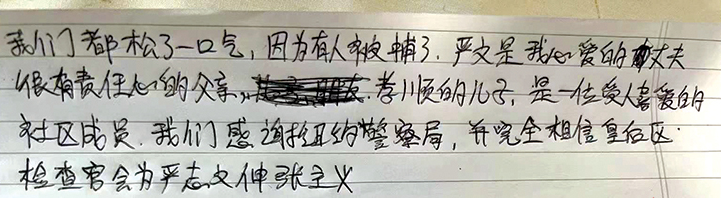 我们都松了一口气，因为有人被捕了．严文是我心爱的丈夫
很有责任心的父亲，孝顺的儿子，是一位受人喜爱的
社区成员．我们感谢纽约警察局，并完全相信皇后区
检查官会为严志文伸张主义